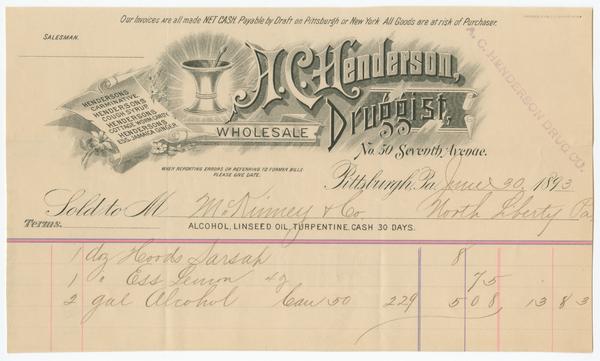 Our Invoices are all made NET CASH. Payable by Draft on Pittsburgh or New York All Goods are at risk of Purchaser.
SALESMAN.
A. C. HENDERSON DRUG CO.
HENDERSONS
CARMINATIVE
HENDERSONS
COUGH SYRUP
HENDERSONS
COTTAGE WORM CANDY
HENDERSONS
ESS. JAMAICA GINGER
A. C. Henderson,
WHOLESALE
Druggist,
No. 50 Seventh Avenue.
WHEN REPORTING ERRORS OR REFERRING TO FORMER BILLS
PLEASE GIVE DATE.
Pittsburgh, Pa. June 30 1893
Sold to M McKinney & Co. North Liberty Pa
Terms. ALCOHOL, LINSEED OIL, TURPENTINE, CASH 30 DAYS.
1 doz Hoods Sarsap 8
1 " Ess Lemon 4z 75
2 gal Alcohol Can 50 229 5 08 13 83